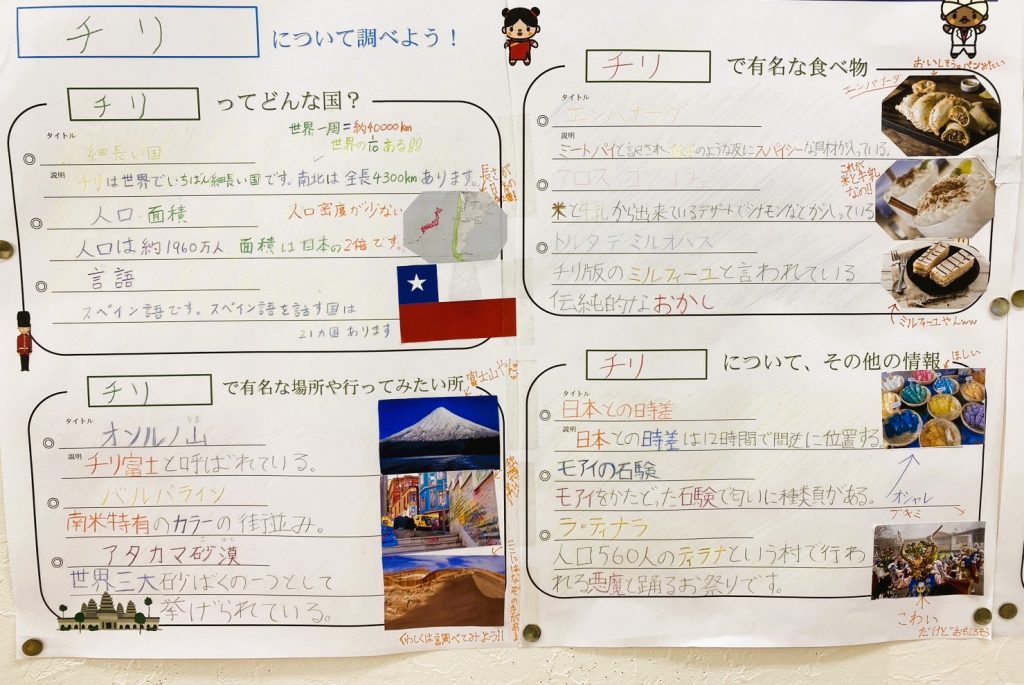 チリ について調べよう！
チリ ってどんな国？
タイトル
細長い国
世界一周=約40000km
世界の1/10ある!!
説明
チリは世界でいちばん細長い国です。南北は全長4300kmあります。
人口・面積
人口密度が少ない
人口は約1960万人 面積は日本の2倍です。
言語
スペイン語です。スペイン語を話す国は
21ヵ国あります
チリ で有名な食べ物
おいしそう。パンみたい
タイトル
エンパナーダ
エンパナーダ
説明
ミートパイと訳され、餃子のような皮にスパイシーな具材が入っている。
これが
米と牛乳
なの!!
米と牛乳から出来ているデザートでシナモンなどが入っている
トルタ・デ・ミルオハス
チリ版のミルフィーユと言われている
伝純的なおかし
ミルフィーユやんww
チリ で有名な場所や行ってみたい所
富士山やん
タイトル
オソルノ山
やま
説明
チリ富士と呼ばれている。
バルパライソ
南米特有のカラーの街並み。
アタカマ砂漠
さばく
世界三大砂ばくの一つとして
挙げられている。
くわしくは調べてみよう!!
チリ について、その他の情報
ほしい
タイトル
日本との時差
説明
日本との時差は12時間で間逆に位置する。
モアイの石験
モアイをかたどった石験で匂いに種類がある。
オシャレ
ブキミ
ラ・ティナラ
人口560人のティラナという村で行わ
れる悪魔と踊るお祭りです。
こわい
だけどおもしろそう